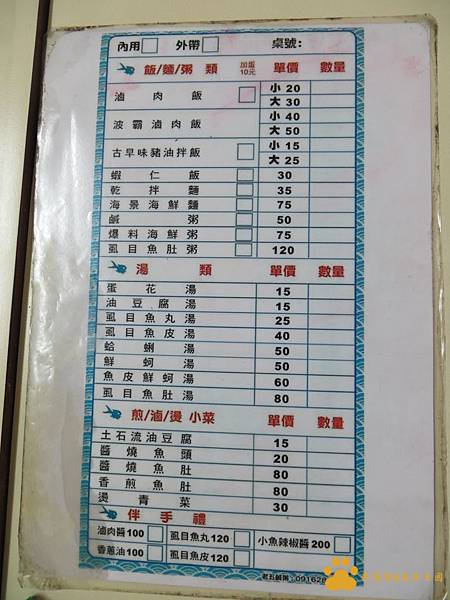 內用 外帶 桌號:
飯/麵/粥 類 加蛋10元 單價 數量
滷肉飯 小 20
大 30
波霸滷肉飯 小 40
大 50
古早味豬油拌飯 小 15
大 25
蝦仁飯 30
乾拌麵 35
海景海鮮麵 75
鹹粥 50
爆料海鮮粥 75
虱目魚肚粥 120
湯類 單價 數量
蛋花湯 15
油豆腐湯 15
虱目魚丸湯 25
虱目魚皮湯 40
蛤蜊湯 50
鮮蚵湯 50
魚皮鮮蚵湯 60
虱目魚肚湯 80
煎/滷/燙 小菜 單價 數量
土石流油豆腐 15
醬燒魚頭 20
醬燒魚肚 80
香煎魚肚 80
燙青菜 30
伴手禮
滷肉醬100 虱目魚丸120 小魚辣椒醬200
香蔥油100 虱目魚皮120